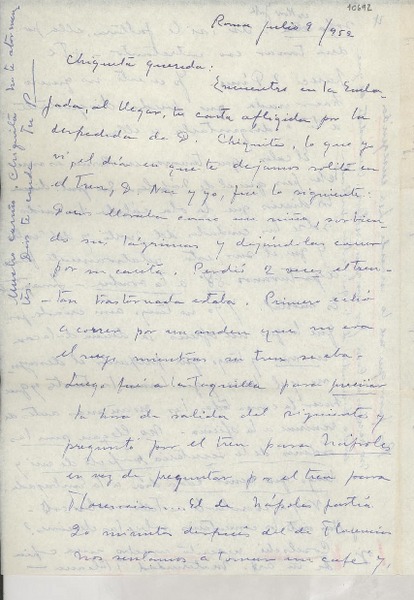 10692
Roma julio 9/952
Chiquita querida.
Encuentro en la Emba-
jada, al llegar, tu carta afligida por la
despedida de D. Chiquita, lo que yo
vi el día en que te dejamos solita en
el tren, D. Nac y yo, fué lo siguiente.
Doris lloraba como una niña, sorbien-
do sus lágrimas y dejándolas correr
por su carita. Perdió 2 veces el tren
tan trastornada estaba. Primero echó
a correr por un anden que no era
el suyo mientras su tren se iba.
Luego fué a la taquilla para
la hora de salida del siguiente y
preguntó por el tren para Nápoles
en vez de preguntar por el tren para
Florencia. El de Nápoles partía
20 minutos después del de Florencia
Nos sentamos a tomar un café y
Mucho cariño. Chiquita no te atormen
tes. Dios te cuida tu P